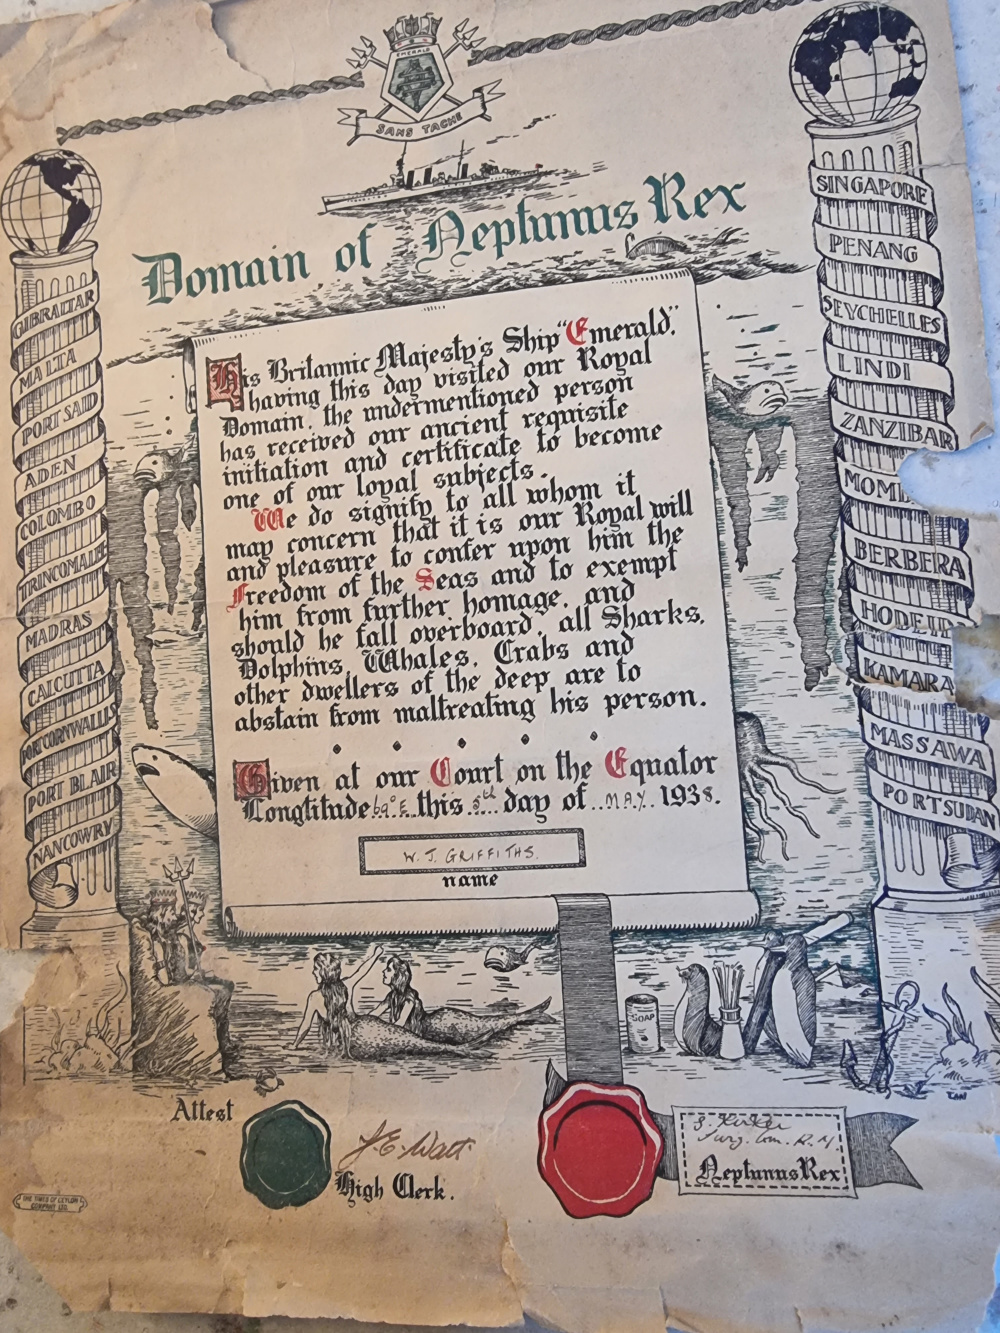 EMERALD
SANS TACHE
Domain of Neptunus Rex
GIBRALTAR
MALTA
PORT SAID
ADEN
COLOMBO
TRINCOMALEE
MADRAS
CALCUTTA
PORT CORNWALLIS
PORT BLAIR
NANCOWRY
His Britannic Majesty's Ship "Emerald",
having this day visited our Royal
Domain, the undermentioned person
has received our ancient requisite
initiation and certificate to become
one of our loyal subjects.
We do signify to all whom it
may concern that it is our Royal will
and pleasure to confer upon him the
Freedom of the Seas and to exempt
him from further homage, and
should he fall overboard, all Sharks,
Dolphins, Whales, Crabs and
other dwellers of the deep are to
abstain from maltreating his person.
Given at our Court on the Equator
Longtitude 69° E. this 5th day of MAY. 1938.
W. J. GRIFFITHS.
name
SINGAPORE
PENANG
SEYCHELLES
LINDI
ZANZIBAR
MOMB
BERBERA
HODEID
KAMARA
MASSAWA
PORT SUDAN
SOAP
Attest
J. E. Watt
High Clerk.
Surg. Com. R.N.
Neptunus Rex
THE TIMES OF CEYLON
COMPANY LTD.